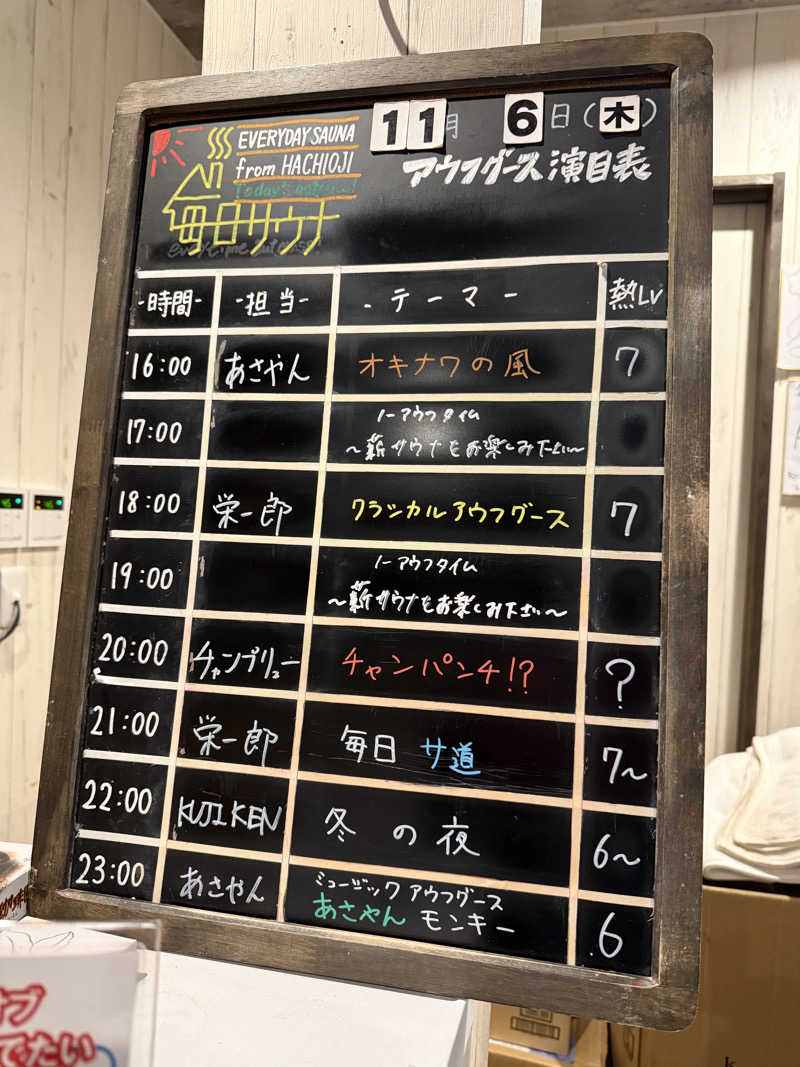 11月 6日(木)
EVERYDAY SAUNA
from HACHIOJI
毎日サウナ
アウフグース演目表
-時間- -担当- -テーマ- 熱LV
16:00 あさやん オキナワの風 7
17:00 ノーアウフタイム
～薪サウナをお楽しみ下さい～
18:00 栄一郎 クラシカルアウフグース 7
19:00 ノーアウフタイム
～薪サウナをお楽しみ下さい～
20:00 チャンプリュー チャンパンチ!? ?
21:00 栄一郎 毎日 サ道 7～
22:00 KUJIKEN 冬の夜 6～
23:00 あさやん ミュージックアウフグース
あさやんモンキー 6
でたい